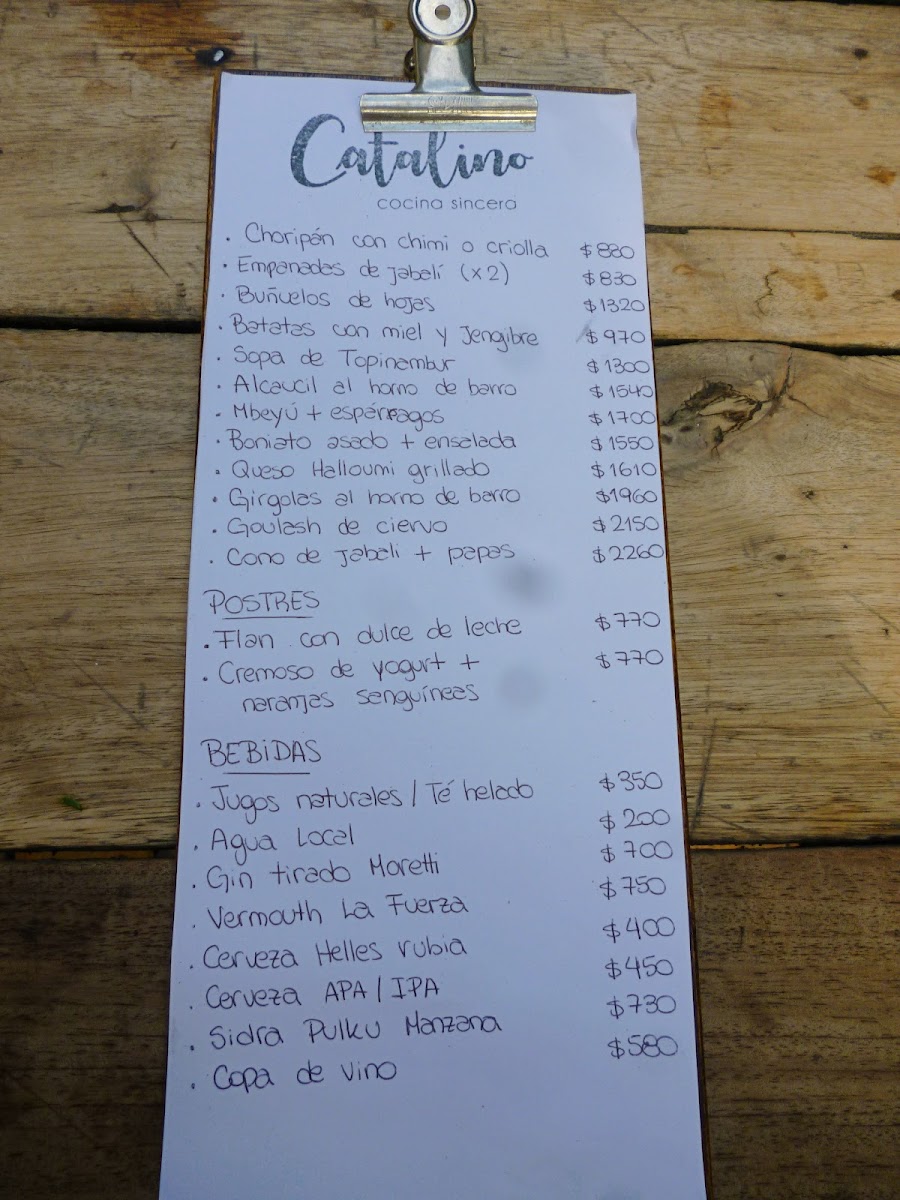 Catalino
cocina sincera
. Choripán con chimi o criolla $880
. Empanadas de jabalí (x2) $830
. Buñuelos de hojas $1320
. Batatas con miel y Jengibre $970
. Sopa de Topinambur $1300
. Alcaucil al horno de barro $1540
. Mbeyú + espárragos $1700
. Boniato asado + ensalada $1550
. Queso Halloumi grillado $1610
. Girgolas al horno de barro $1960
. Goulash de ciervo $2150
. Cono de jabali + papas $2260
POSTRES
. Flan con dulce de leche $770
. Cremoso de yogurt + $770
naranjas sanguíneas
BEBIDAS
. Jugos naturales / Té helado $350
. Agua Local $200
. Gin tirado Moretti $700
. Vermouth La Fuerza $750
. Cerveza Helles rubia $400
. Cerveza APA / IPA $450
. Sidra Pulku Manzana $730
. Copa de vino $580